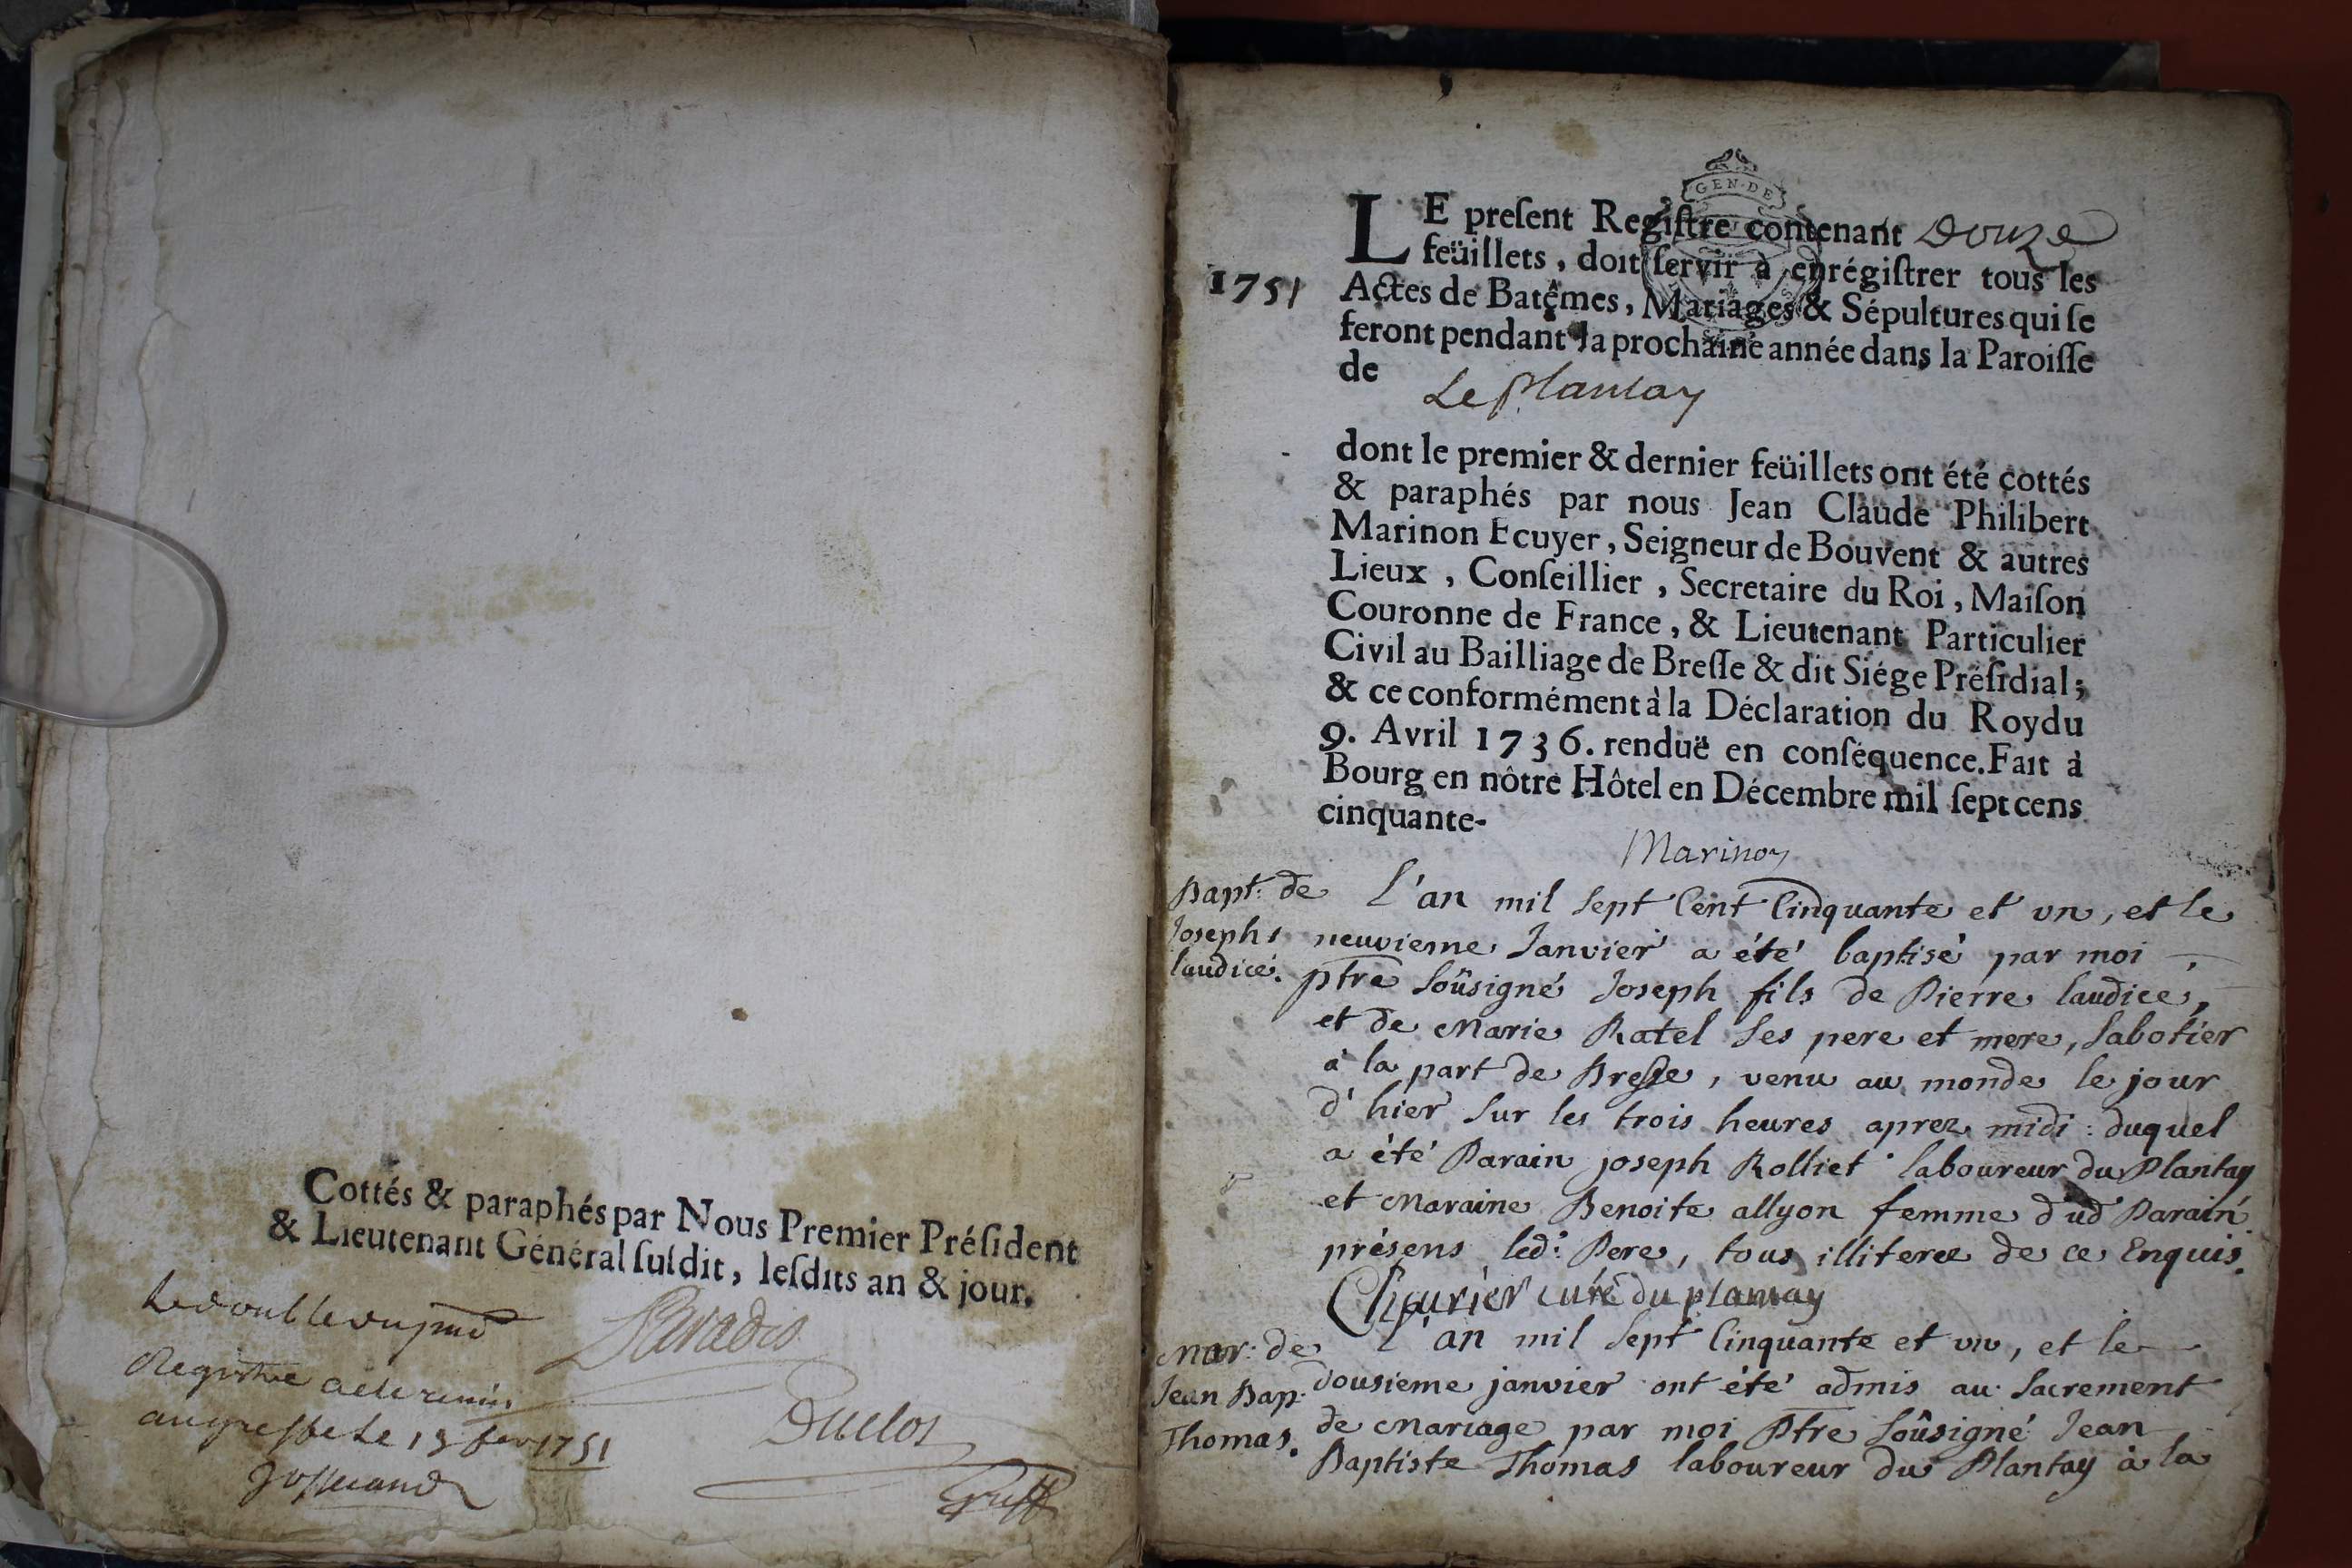 Cottés & paraphés par Nous Premier Préſident
& Lieutenant Général ſuſdit, leſdits an & jour.
Le double du pnt
Paradis
Registre a été remis
au greffe le 13 fev 1751
Duclos
Greff
GEN·DE
LE preſent Regiſtre contenant Douze
feüillets, doit ſervir à enrégiſtrer tous les
1751
Actes de Batêmes, Mariages & Sépultures qui ſe
feront pendant la prochaine année dans la Paroiſſe
de
Le Plantay
dont le premier & dernier feüillets ont été cottés
& paraphés par nous Jean Claude Philibert
Marinon Ecuyer, Seigneur de Bouvent & autres
Lieux, Conſeillier, Secretaire du Roi, Maiſon
Couronne de France, & Lieutenant Particulier
Civil au Bailliage de Breſſe & dit Siége Préſidial;
& ce conformément à la Déclaration du Roy du
9. Avril 1736. renduë en conſéquence. Fait à
Bourg en nôtre Hôtel en Décembre mil ſept cens
cinquante-
Marinon
Bapt: de
Joseph
laudicé.
L'an mil sept Cent Cinquante et un, et le
neuvieme Janvier a été baptisé par moi
ptre soûsigné Joseph fils de Pierre laudice,
et de Marie Ratel ses pere et mere, Sabotier
à la part de Bresse, venu au monde le jour
d'hier sur les trois heures aprez midi: duquel
a été Parain joseph Rolliet laboureur du Plantay
et Maraine Benoite allyon femme dud Parain
présens led: Pere, tous illiteree de ce Enquis.
Chourier curé du plantay
Mar: de
Jean Bap:
Thomas.
L'an mil sept Cinquante et un, et le
dousieme janvier ont été admis au Sacrement
de Mariage par moi Ptre soûsigné Jean
Baptiste Thomas laboureur du Plantay à la